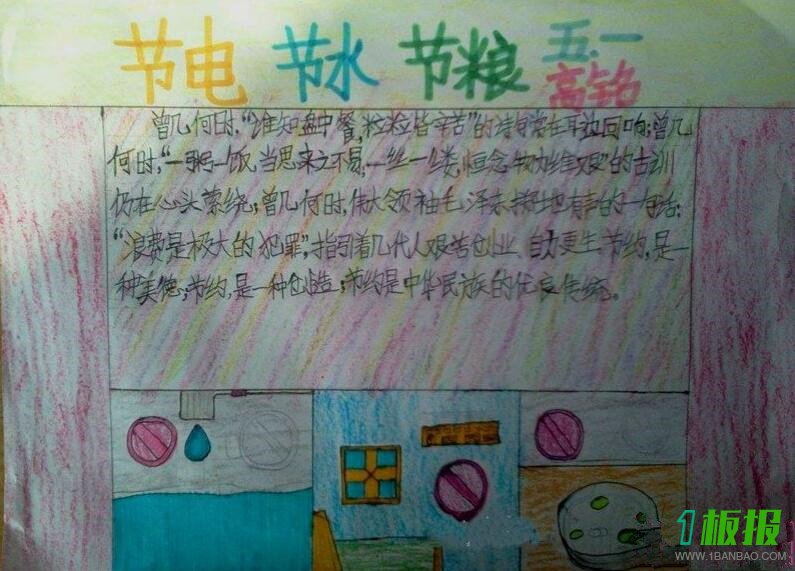 节电 节水 节粮 五.一
高铭
曾几何时,“谁知盘中餐,粒粒皆辛苦”的诗句常在耳边回响;曾几
何时,“一粥一饭,当思来之不易,一丝一缕,恒念物力维艰”的古训
仍在心头萦绕;曾几何时,伟大领袖毛泽东掷地有声的一句话:
“浪费是极大的犯罪”,指引着几代人艰苦创业、自力更生。节约,是一
种美德;节约,是一种创造;节约是中华民族的优良传统。
1板报
WWW.1BANBAO.COM